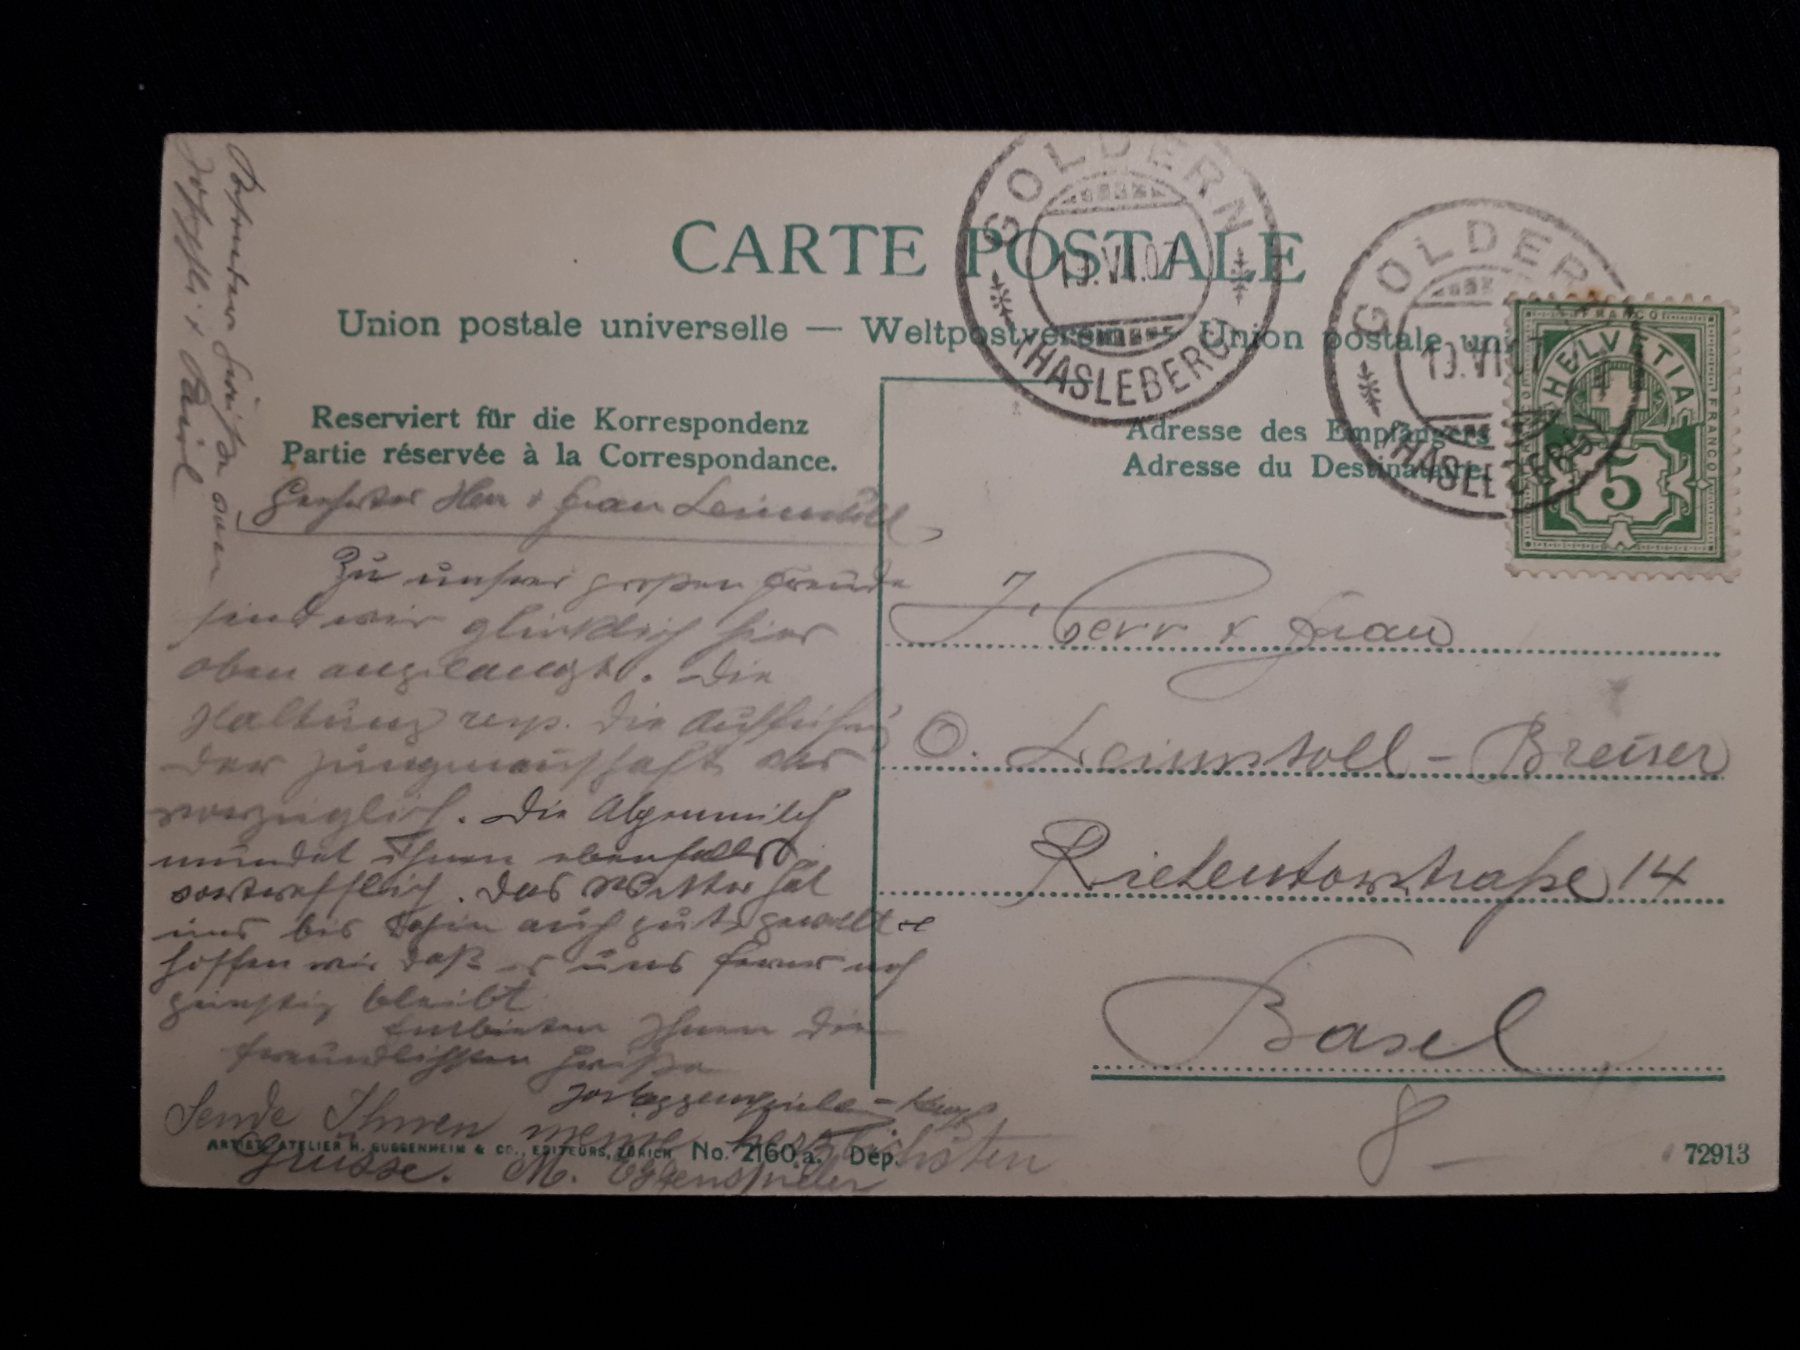 CARTE POSTALE
Union postale universelle — Weltpostverein — Union postale un
GOLDERN
19.VI.07
(HASLEBERG)
GOLDERN
19.VI.07
(HASLEBERG)
FRANCO
HELVETIA
FRANCO
5
Reserviert für die Korrespondenz
Partie réservée à la Correspondance.
Adresse des Empfängers
Adresse du Destinataire
Geehrter Herr & Frau Leimstoll
Zu unserer grossen Freude
sind wir glücklich hier
oben angelangt. Die
Haltung resp. die
der Jungmannschaft
vorzüglich. Die Alpenmilch
mundet Ihnen ebenfalls
vortrefflich. Das Wetter hat
uns bis dahin auch gut
hoffen wir daß es uns ferner noch
günstig bleibt
Entbieten Ihnen die
freundlichsten Grüße
Sende Ihnen meine herzlichsten
Grüsse. M. Eggenspieler
Grüße an
& Karl
Herr & Frau
O. Leimstoll - Breuser
Riehentorstraße 14
Basel
8
ARTIST. ATELIER H. GUGGENHEIM & Co., EDITEURS, ZÜRICH No. 2160 a. Dep.
72913